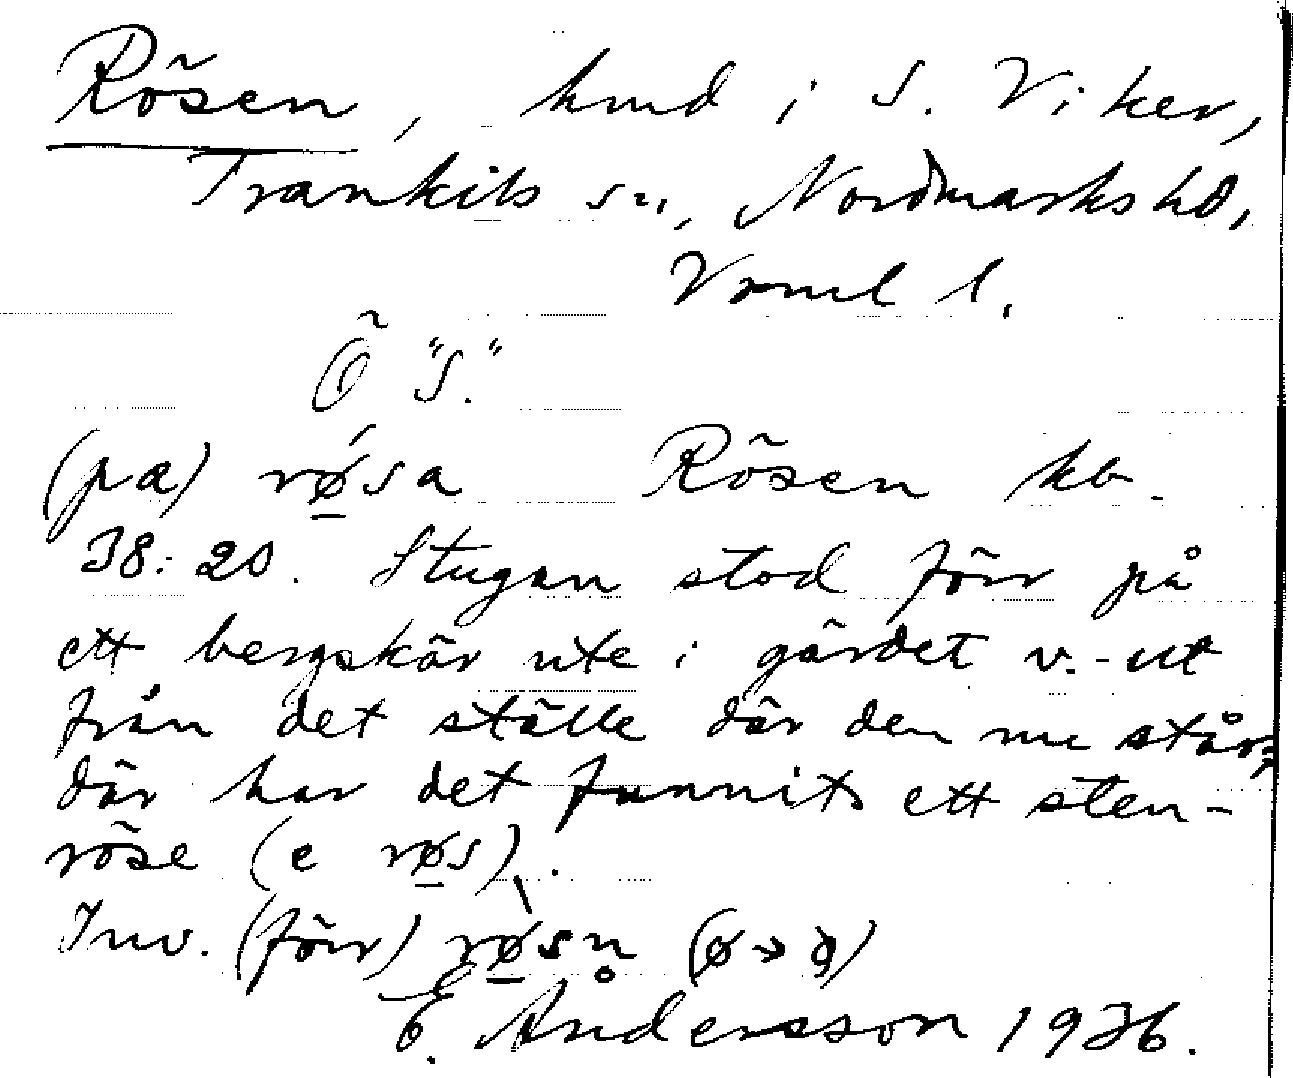 Rösen, hmd i S. Viker,
Trankils sn, Nordmarks hd,
Vrml l.
Ö "S."
(pæ) rǿ̱sa Rösen kb.
38:20. Stugan stod förr på
ett bergskär ute i gärdet v.-ut
från det ställe där den nu står;
där har det funnits ett sten-
röse (e rø̱s).
Inv. (förr) rø̱̀sn̥
E. Andersson 1936.